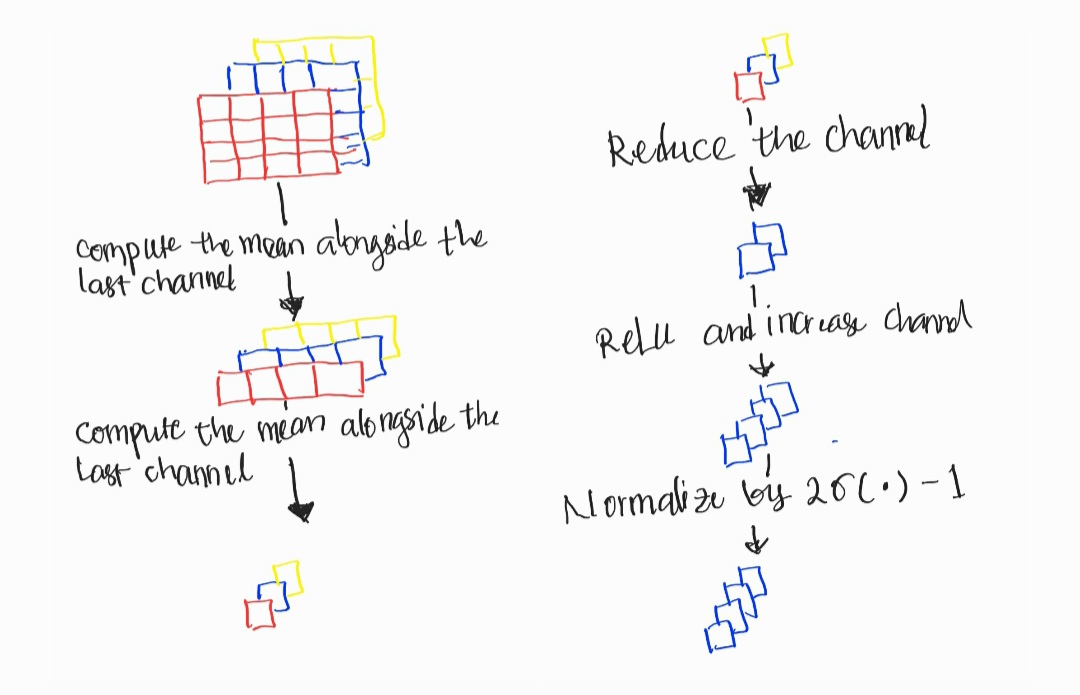 compute the mean alongside the
last channel
compute the mean alongside the
last channel
Reduce the channel
ReLU and increase channel
Normalize by 2σ(·) - 1